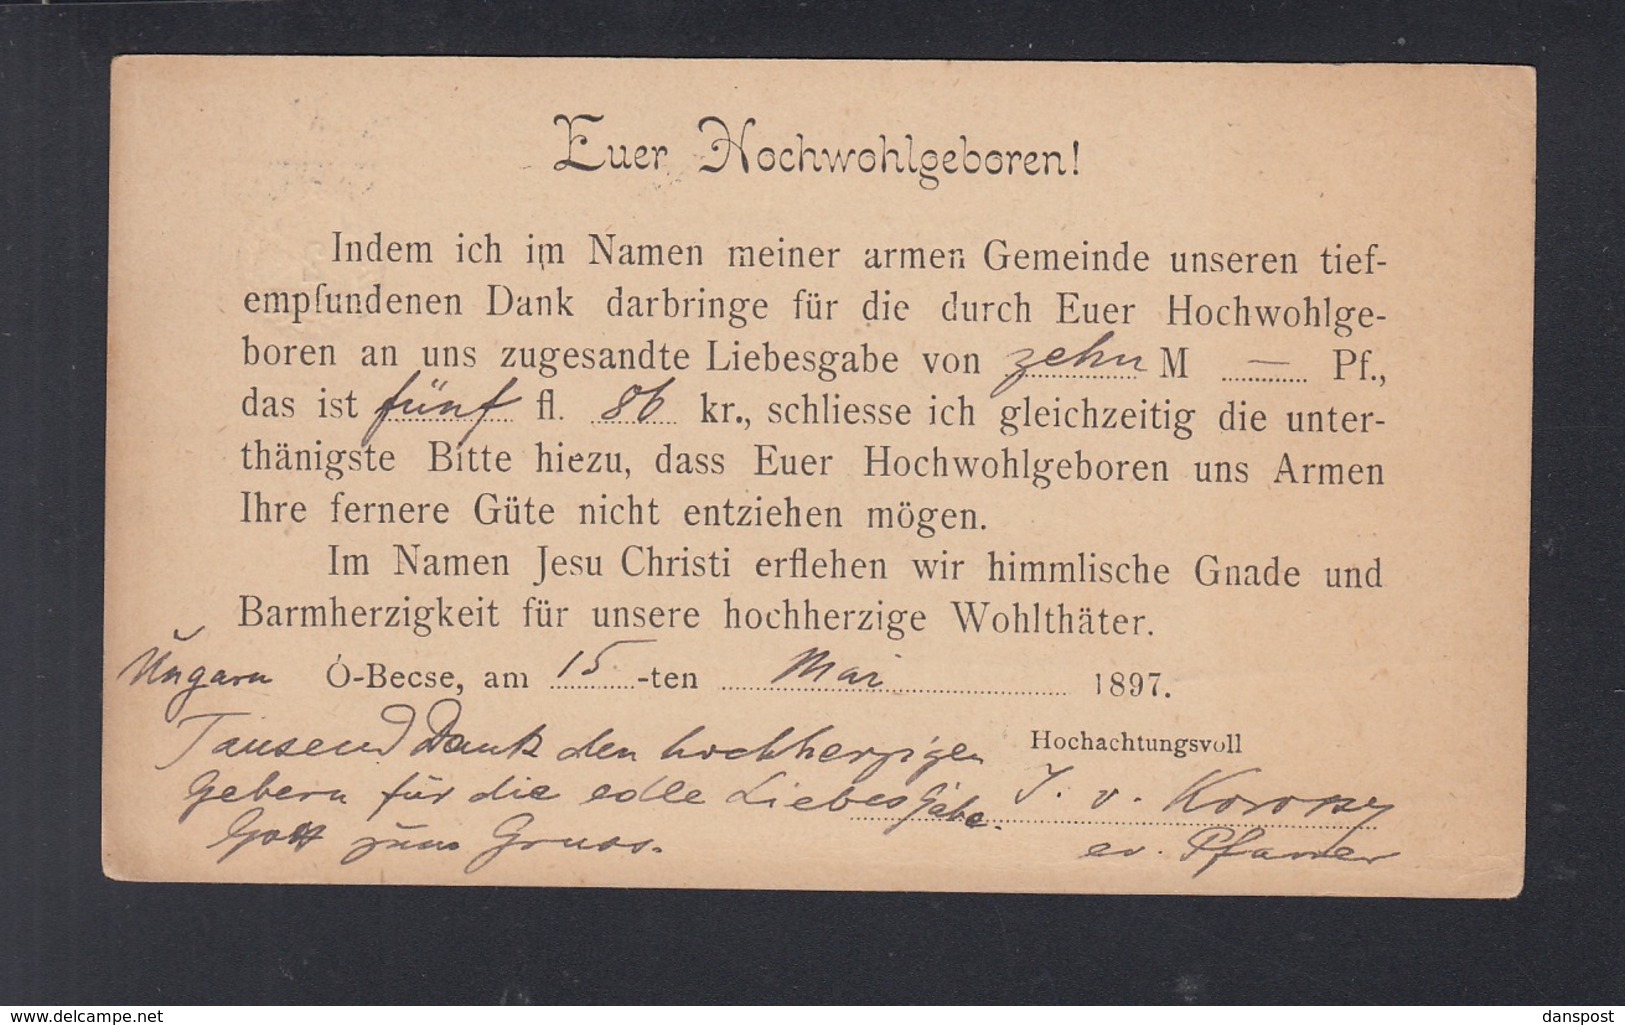 Euer Hochwohlgeboren!
Indem ich im Namen meiner armen Gemeinde unseren tief-
empfundenen Dank darbringe für die durch Euer Hochwohlge-
boren an uns zugesandte Liebesgabe von zehn M — Pf.,
das ist fünf fl. 86 kr., schliesse ich gleichzeitig die unter-
thänigste Bitte hiezu, dass Euer Hochwohlgeboren uns Armen
Ihre fernere Güte nicht entziehen mögen.
Im Namen Jesu Christi erflehen wir himmlische Gnade und
Barmherzigkeit für unsere hochherzige Wohlthäter.
Ungarn Ó-Becse, am 15-ten Mai 1897.
Tausend Dank den hochherzigen
Gebern für die edle Liebesgabe.
Gott zum Gruss.
Hochachtungsvoll
J. v.
ev. Pfarrer
www.delcampe.net
danspost